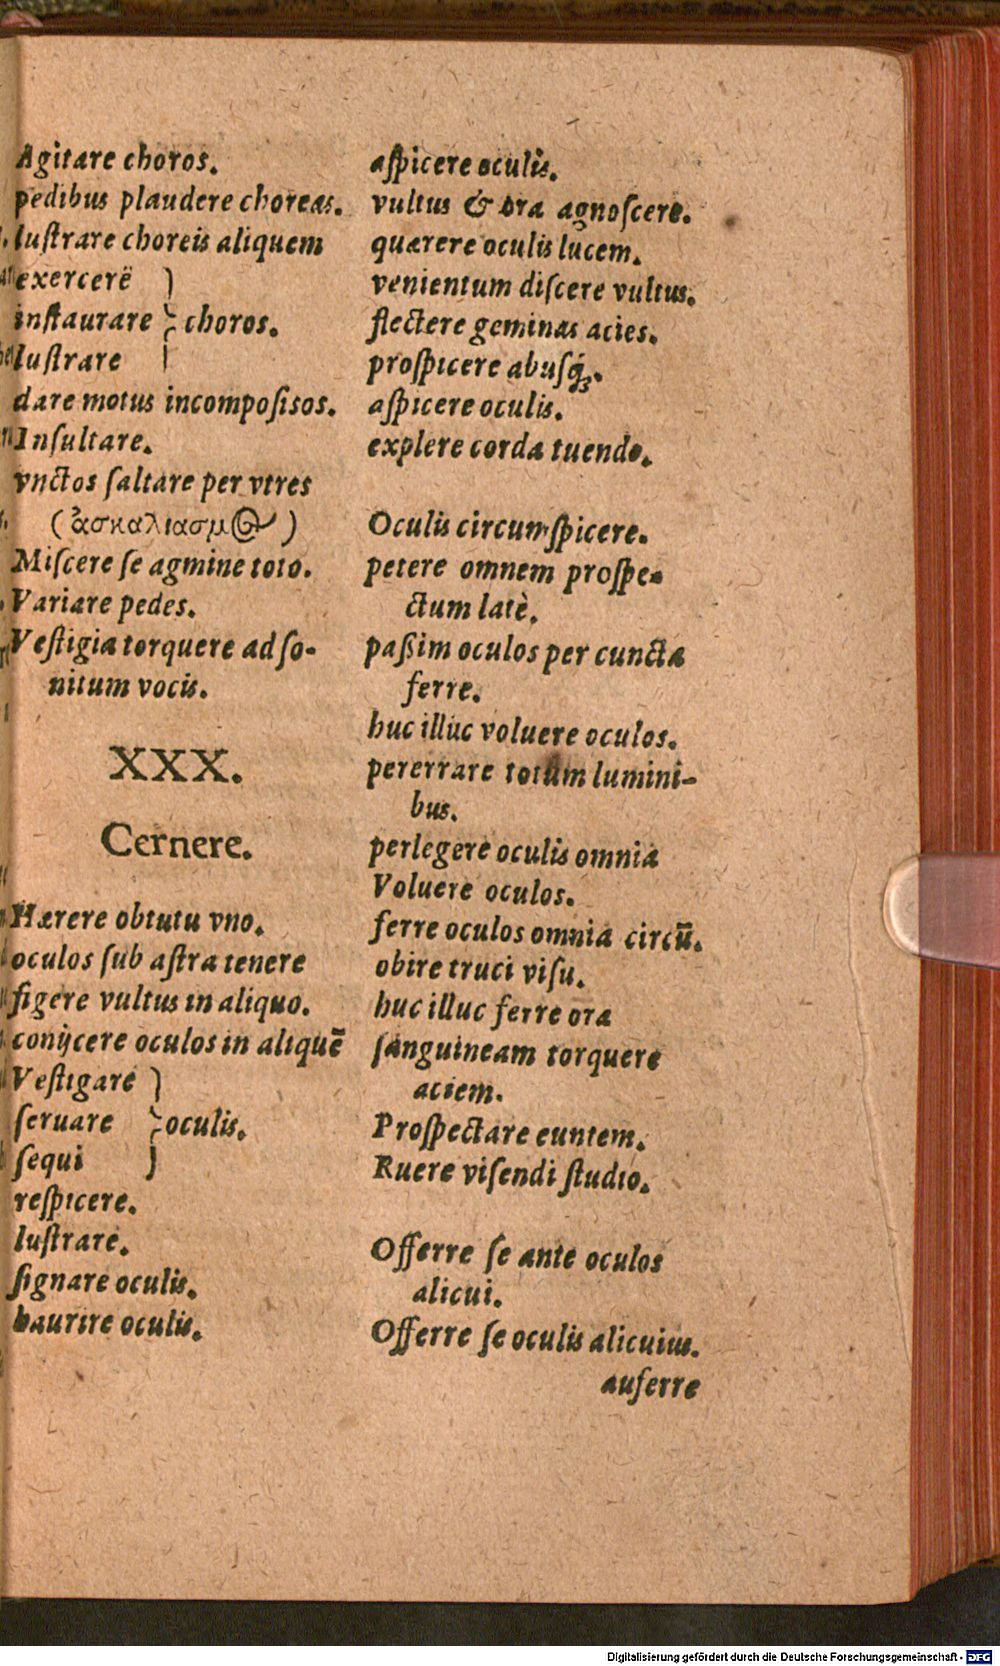 Agitare choros.
pedibus plaudere choreas.
lustrare choreis aliquem
exercerë }
instaurare } choros.
lustrare }
dare motus incompoſisos.
Inſultare.
vnctos ſaltare per vtres
(ἀσκαλιασμὸς)
Miſcere ſe agmine toto.
Variare pedes.
Veſtigia torquere ad ſo-
nitum vocis.
XXX.
Cernere.
Hærere obtutu vno.
oculos ſub aſtra tenere
figere vultus in aliquo.
conijcere oculos in aliquē
Veſtigare }
ſeruare } oculis.
ſequi }
reſpicere.
luſtrare.
ſignare oculis.
haurire oculis.
aſpicere oculis.
vultus & ora agnoſcere.
quærere oculis lucem.
venientum diſcere vultus.
flectere geminas acies.
proſpicere abuſq́;.
aſpicere oculis.
explere corda tuendo.
Oculis circumſpicere.
petere omnem proſpe-
ctum latè.
paßim oculos per cuncta
ferre.
huc illuc voluere oculos.
pererrare totum lumini-
bus.
perlegere oculis omnia
Voluere oculos.
ferre oculos omnia circū.
obire truci viſu.
huc illuc ferre ora
ſanguineam torquere
aciem.
Proſpectare euntem.
Ruere viſendi ſtudio.
Offerre ſe ante oculos
alicui.
Offerre ſe oculis alicuius.
auferre
Digitalisierung gefördert durch die Deutsche Forschungsgemeinschaft - DFG